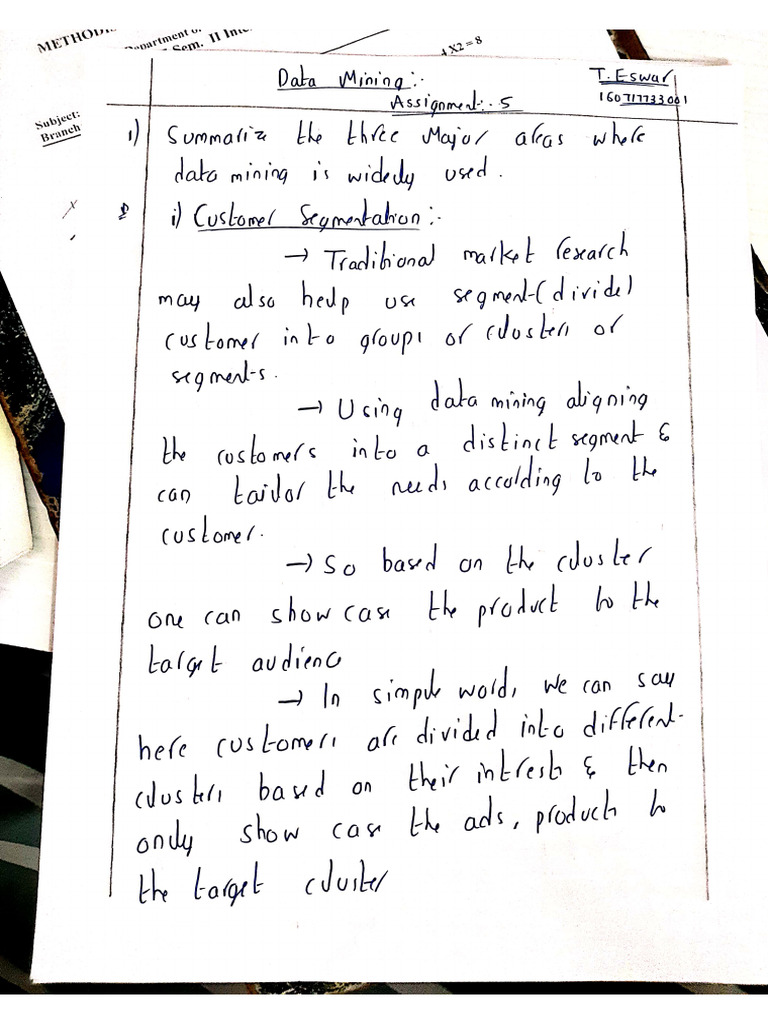 METHOD
Department o
Sem. II Inte
4 X2 = 8
Subject:
Branch
Data Mining:-
T. Eswar
Assignment:- 5
160717733001
1) Summarize the three Major areas where
data mining is widely used.
i) Customer Segmentation:-
→ Traditional market research
may also help use segment (divide)
customer into groups or clusters or
segments.
→ Using data mining aligning
the customers into a distinct segment &
can tailor the needs according to the
customer.
→ So based on the cluster
one can show case the product to the
target audienc
→ In simple words, we can say
here customers are divided into different
clusters based on their intrests & then
only show case the ads, products to
the target cluster